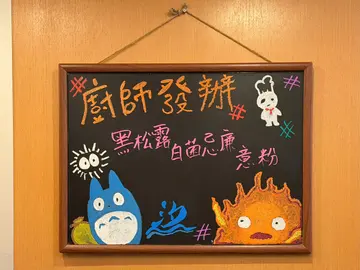 廚師發辦
黑松露
白菌忌廉
意粉